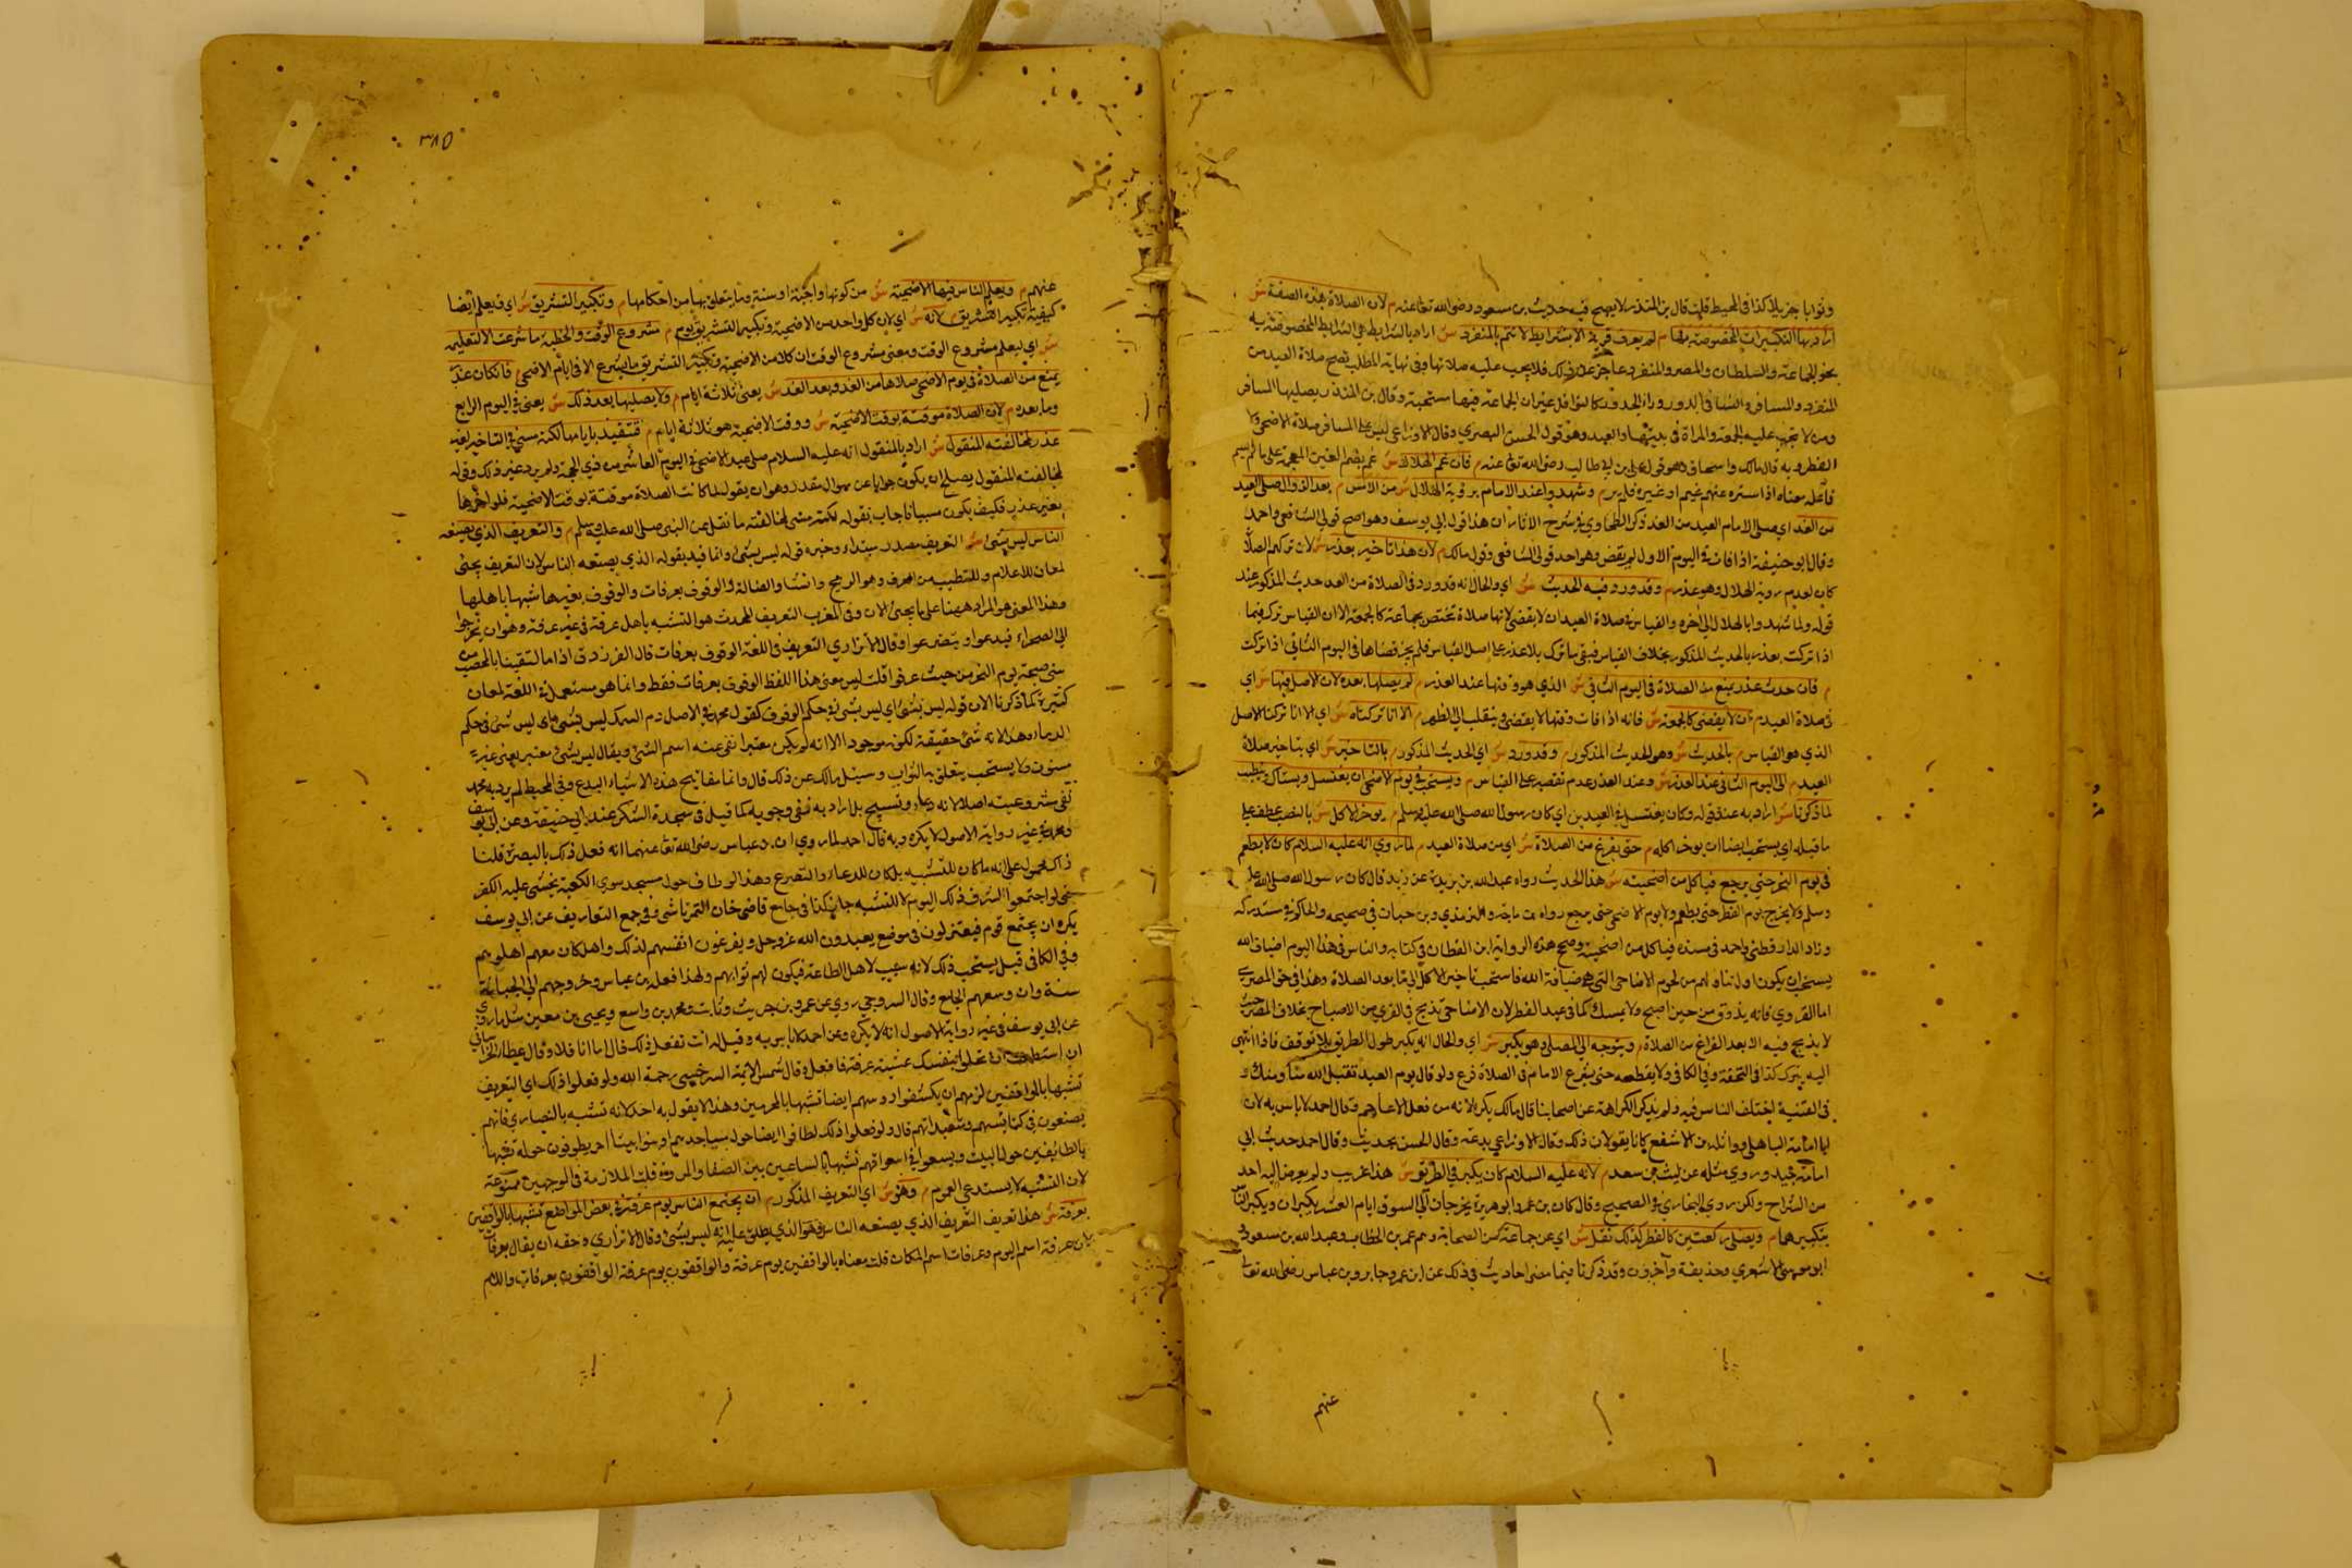 وثوابا جزيلا كذا في المحيط قلت قال بن المنذر لا يصح فيه حديث بن مسعود رضى الله تعالى عنه م لان الصلاة بهذه الصفة ش
اراد بها التكبيرات المخصوصة بها م لم يعرف قربة الا بشرايط لا تتم بالمنفرد ش اراد بالشرايط هي الشرايط المخصوصة به
نحو الجماعة والسلطان والمصر والمنفرد عاجز عن ذلك فلا يجب عليه صلاتها وفي نهاية المطلب تصح صلاة العيد من
المنفرد والمسافر والنساء في الدور وراء الخدور كالنوافل غير ان الجماعة فيها مستحبة وقال بن المنذر يصليها المسافر
ومن لا تجب عليه الجمعة والمراة في بيتها والعبد وهو قول الحسن البصري وقال الاوزاعي ليس على المسافر صلاة الاضحى ولا
الفطر وبه قال مالك واسحاق وهو قول علي بن ابي طالب رضى الله تعالى عنه م فان غم الهلال ش غم بضم الغين المعجمة على ما لم يسم
فاعله معناه اذا ستره عنهم غيم او غيره فلم ير م وشهدوا عند الامام بروية الهلال ش من الامس م بعد الزوال صلى العيد
من الغد اي صلى الامام العيد من الغد ذكر الطحاوي في شرح الاثار ان هذا قول ابي يوسف وهو اصح قولي الشافعي واحمد
وقال ابو حنيفة اذا فات في اليوم الاول لم يقض وهو احد قولي الشافعي وقول مالك م لان هذا تاخير بعذر ش لان تركهم الصلاة
كان لعدم روية الهلال وهو عذر م وقد ورد فيه الحديث ش اي والحال انه قد ورد في الصلاة من الغد حديث المذكور عند
قوله ولما شهدوا بالهلال الى اخره والقياس في صلاة العيد ان لا يقضى لانها صلاة تختص بجماعة كالجمعة الا ان القياس ترك فيما
اذا تركت بعذر بالحديث المذكور بخلاف القياس فبقي ما ترك بلا عذر على اصل القياس فلم يجز قضاها في اليوم الثاني اذا تركت
م فان حدث عذر يمنع من الصلاة في اليوم الثاني ش الذي هو وقتها عند العذر م لم يصلها بعده لان الاصل فيها ش اي
في صلاة العيد م ان لا يقضى كالجمعة ش فانه اذا فات وقتها لا يقضى وينقلب الى الظهر م الا انا تركناه ش اي الا انا تركنا الاصل
الذي هو القياس م بالحديث ش وهو الحديث المذكور م وقد ورد ش اي الحديث المذكور م بالتاخير ش اي بتاخير صلاة
العيد م الى اليوم الثاني عند العذر ش وعند العذر عدم نقصه على القياس م ويستحب في يوم الاضحى ان يغتسل ويستاك ويتطيب
لما ذكرنا ش اراد به عند قوله وكان يغتسل في العيدين اي كان رسول الله صلى الله عليه وسلم م يوخر الاكل ش بالنصب عطف على
ما قبله اي يستحب ايضا ان يوخر اكله م حتى يفرغ من الصلاة ش اي من صلاة العيد م لما روي انه عليه السلام كان لا يطعم
في يوم النحر حتى يرجع فياكل من اضحيته ش هذا الحديث رواه عبد الله بن بريدة عن بريدة قال كان رسول الله صلى الله عليه
وسلم لا يخرج يوم الفطر حتى يطعم ولا يوم الاضحى حتى يرجع رواه بن ماجة والترمذي وبن حبان في صحيحه والحاكم في مستدركه
وزاد الدارقطني واحمد في مسنده فياكل من اضحيته وصحح هذه الرواية ابن القطان في كتابه والناس في هذا اليوم اضياف الله
يستحب ان يكون اول تناولهم من لحوم الاضاحي التي هي ضيافة الله فاستحب تاخير الاكل الى ما بعد الصلاة وهذا في حق المصري
اما القروي فانه يذوق من حين اصبح ولا يمسك كما في عيد الفطر لان الاضاحي تذبح في القري من الاصباح بخلاف المصر حيث
لا يذبح فيه الا بعد الفراغ من الصلاة م ويتوجه الى المصلى وهو يكبر ش اي والحال انه يكبر طول الطريق بلا توقف فاذا انتهى
اليه يترك كذا في التحفة وفي الكافي ولا يقطعه حتى يشرع الامام في الصلاة فرع ولو قال يوم العيد تقبل الله منا ومنك و
في القنية اختلف الناس فيه ولم يذكر الكراهة عن اصحابنا قال مالك يكره لانه من فعل الاعاجم وقال احمد لا باس به لان
ابا امامة الباهلي وواثلة بن الاسقع كانا يقولان ذلك وقال الاوزاعي بدعة وقال الحسن محدث وقال احمد حديث ابي
امامة جيد وروي مثله عن ليث بن سعد م لانه عليه السلام كان يكبر في الطريق ش هذا غريب ولم يعرض اليه احد
من الشراح ولكن روي البخاري في الصحيح وقال كان بن عمر وابو هريرة يخرجان الى السوق ايام العشر يكبران ويكبر الناس
بتكبيرهما م ويصلى ركعتين كالفطر كذلك نقل ش اي عن جماعة من الصحابة وهم عمر بن الخطاب وعبد الله بن مسعود و
ابو موسى الاشعري وحذيفة وآخرون وقد ذكرنا فيما مضى احاديث في ذلك عن ابن عمر وجابر وبن عباس رضى الله تعالى
عنهم
٣٨٥
عنهم م ويعلم الناس فيها الاضحية ش من كونها واجبة او سنة وما يتعلق بها من احكامها م وتكبير التشريق ش اي ويعلم ايضا
كيفية تكبير التشريق م لانه ش اي لان كل واحد من الاضحية وتكبير التشريق يوم م مشروع الوقت والخطبة ما شرعت الا لتعليمه
ش اي ليعلم مشروع الوقت ومعنى مشروع الوقت ان كلا من الاضحية وتكبير التشريق ما يشرع الا في ايام الاضحى م فان كان عذر
يمنع من الصلاة في يوم الاضحى صلاها من الغد وبعد الغد ش يعني ثلاثة ايام م ولا يصليها بعد ذلك ش يعني في اليوم الرابع
وما بعده م لان الصلاة موقتة بوقت الاضحية ش ووقت الاضحية هو ثلاثة ايام م فتتقيد بايامها لكنه مسيء في التاخير بغير
عذر لمخالفته المنقول ش اراد بالمنقول انه عليه السلام صلى عيد الاضحى في اليوم العاشر من ذي الحجة ولم يرد غير ذلك وقوله
لمخالفته المنقول يصلح ان يكون جوابا عن سوال مقدر وهو ان يقول لما كانت الصلاة موقتة بوقت الاضحية فلو اخرها
بغير عذر فكيف يكون مسيا فاجاب بقوله لكنه مسي لمخالفته ما نقل عن النبي صلى الله عليه وسلم م والتعريف الذي يصنعه
الناس ليس بشئ ش التعريف مصدر مبتداء وخبره قوله ليس بشئ وانما قيد بقوله الذي يصنعه الناس لان التعريف يجئ
لمعان للاعلام وللتطييب من العرف وهو الريح وانشاد الضالة والوقوف بعرفات والوقوف بغيرها تشبها باهلها
وهذا المعنى هو المراد ههنا على ما يجئ الان وفي المغرب التعريف المحدث هو التشبه باهل عرفة في غير عرفة وهو ان يخرجوا
الى الصحراء فيدعوا ويتضرعوا وقال الاترازي التعريف في اللغة الوقوف بعرفات قال الفرزدق اذا ما التقينا بالمحصب من
منى صبيحة يوم النحر من حيث عرفوا قلت ليس معنى هذا اللفظ الوقوف بعرفات فقط وانما هو مستعمل في اللغة لمعان
كثيرة كما ذكرنا الان قوله ليس بشئ اي ليس بشئ في حكم الوقوف كقول محمد في الاصل دم السمك ليس بشئ اي ليس شئ في حكم
الدماء وهذا لانه شئ حقيقة لكونه موجودا الا انه لم يكن معتبرا نفى عنه اسم الشئ ويقال ليس بشئ معتبر يعني غير
مسنون ولا يستحب يتعلق به الثواب وسئل مالك عن ذلك قال وانما مفاتيح هذه الاشياء البدع وفي المحيط لم يرد به محمد
نفي مشروعيته اصلا لانه دعاء وتسبيح بل اراد به نفي وجوبه كما قيل في سجدة الشكر عند ابي حنيفة وعن ابي يوسف
ومحمد في غير رواية الاصول لا يكره وبه قال احمد لما روي ان بن عباس رضى الله تعالى عنهما انه فعل ذلك بالبصرة قلنا
ذاك محمول على انه ما كان للتشبيه بل كان للدعاء والتضرع وهذا لو طاف حول مسجد سوي الكعبة يخشى عليه الكفر
حتى لو اجتمعوا لشرف ذلك اليوم لا للتشبه جاز كذا في جامع قاضي خان التمرتاشي وفي جمع التعاريف عن ابي يوسف
يكره ان يجتمع قوم فيعتزلون في موضع يعبدون الله عز وجل ويفرغون انفسهم لذلك وان كان معهم اهلوهم
وفي الكافي قيل يستحب ذلك لانه سبب لاهل الطاعة فيكون لهم ثوابهم ولهذا فعله بن عباس وخروجهم الى الجبانة
سنة وان وسعهم الجامع وقال السروجي روي عن عمرو بن حريث وثابت ومحمد بن واسع ويحيى بن معين مثل ما روي
عن ابي يوسف في غير رواية الاصول انه لا يكره وعن احمد لا باس به وقيل له انت تفعل ذلك قال اما انا فلا وقال عطا الخراساني
ان استطعت ان تخلو بنفسك عشية عرفة فافعل وقال شمس الائمة السرخسي رحمة الله ولو فعلوا ذلك اي التعريف
تشبها بالواقفين لزمهم ان يكشفوا روسهم ايضا تشبها بالمحرمين وهذا لا يقول به احد لانه تشبه بالنصاري فانهم
يصنعون في كنائسهم ومتعبداتهم قال ولو فعلوا ذلك لطافوا ايضا حول مساجدهم او بنوا بيتا اخر يطوفون حوله تشبها
بالطائفين حول البيت ويسعوا في اسواقهم تشبها بالساعين بين الصفا والمروة قلت الملازمة في الوجهين ممنوعة
لان التشبه لا يستدعي العموم م وهو ش اي التعريف المذكور م ان يجتمع الناس يوم عرفة في بعض المواضع تشبها بالواقفين
بعرفة ش هذا تعريف التعريف الذي يصنعه الناس وهو الذي يطلق عليه انه ليس بشئ وقال الاترازي وحقه ان يقال بعرفات
لان عرفة اسم اليوم وعرفات اسم المكان قلت معناه بالواقفين يوم عرفة والواقفون يوم عرفة الواقفون بعرفات واللام